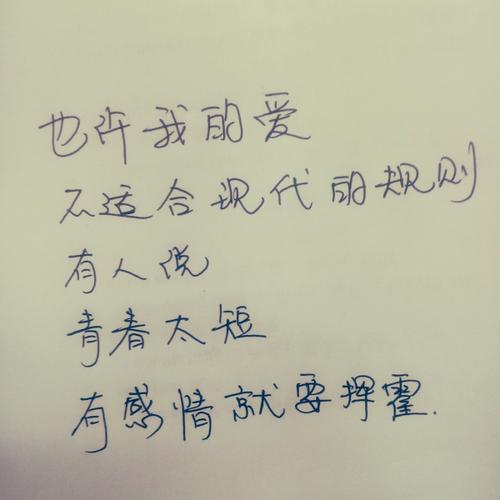 也许我的爱
不适合现代的规则
有人说
青春太短
有感情就要挥霍.